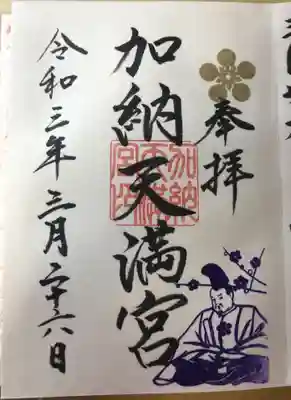 奉拝
加納天満宮
加納天満宮印
令和三年三月二十八日